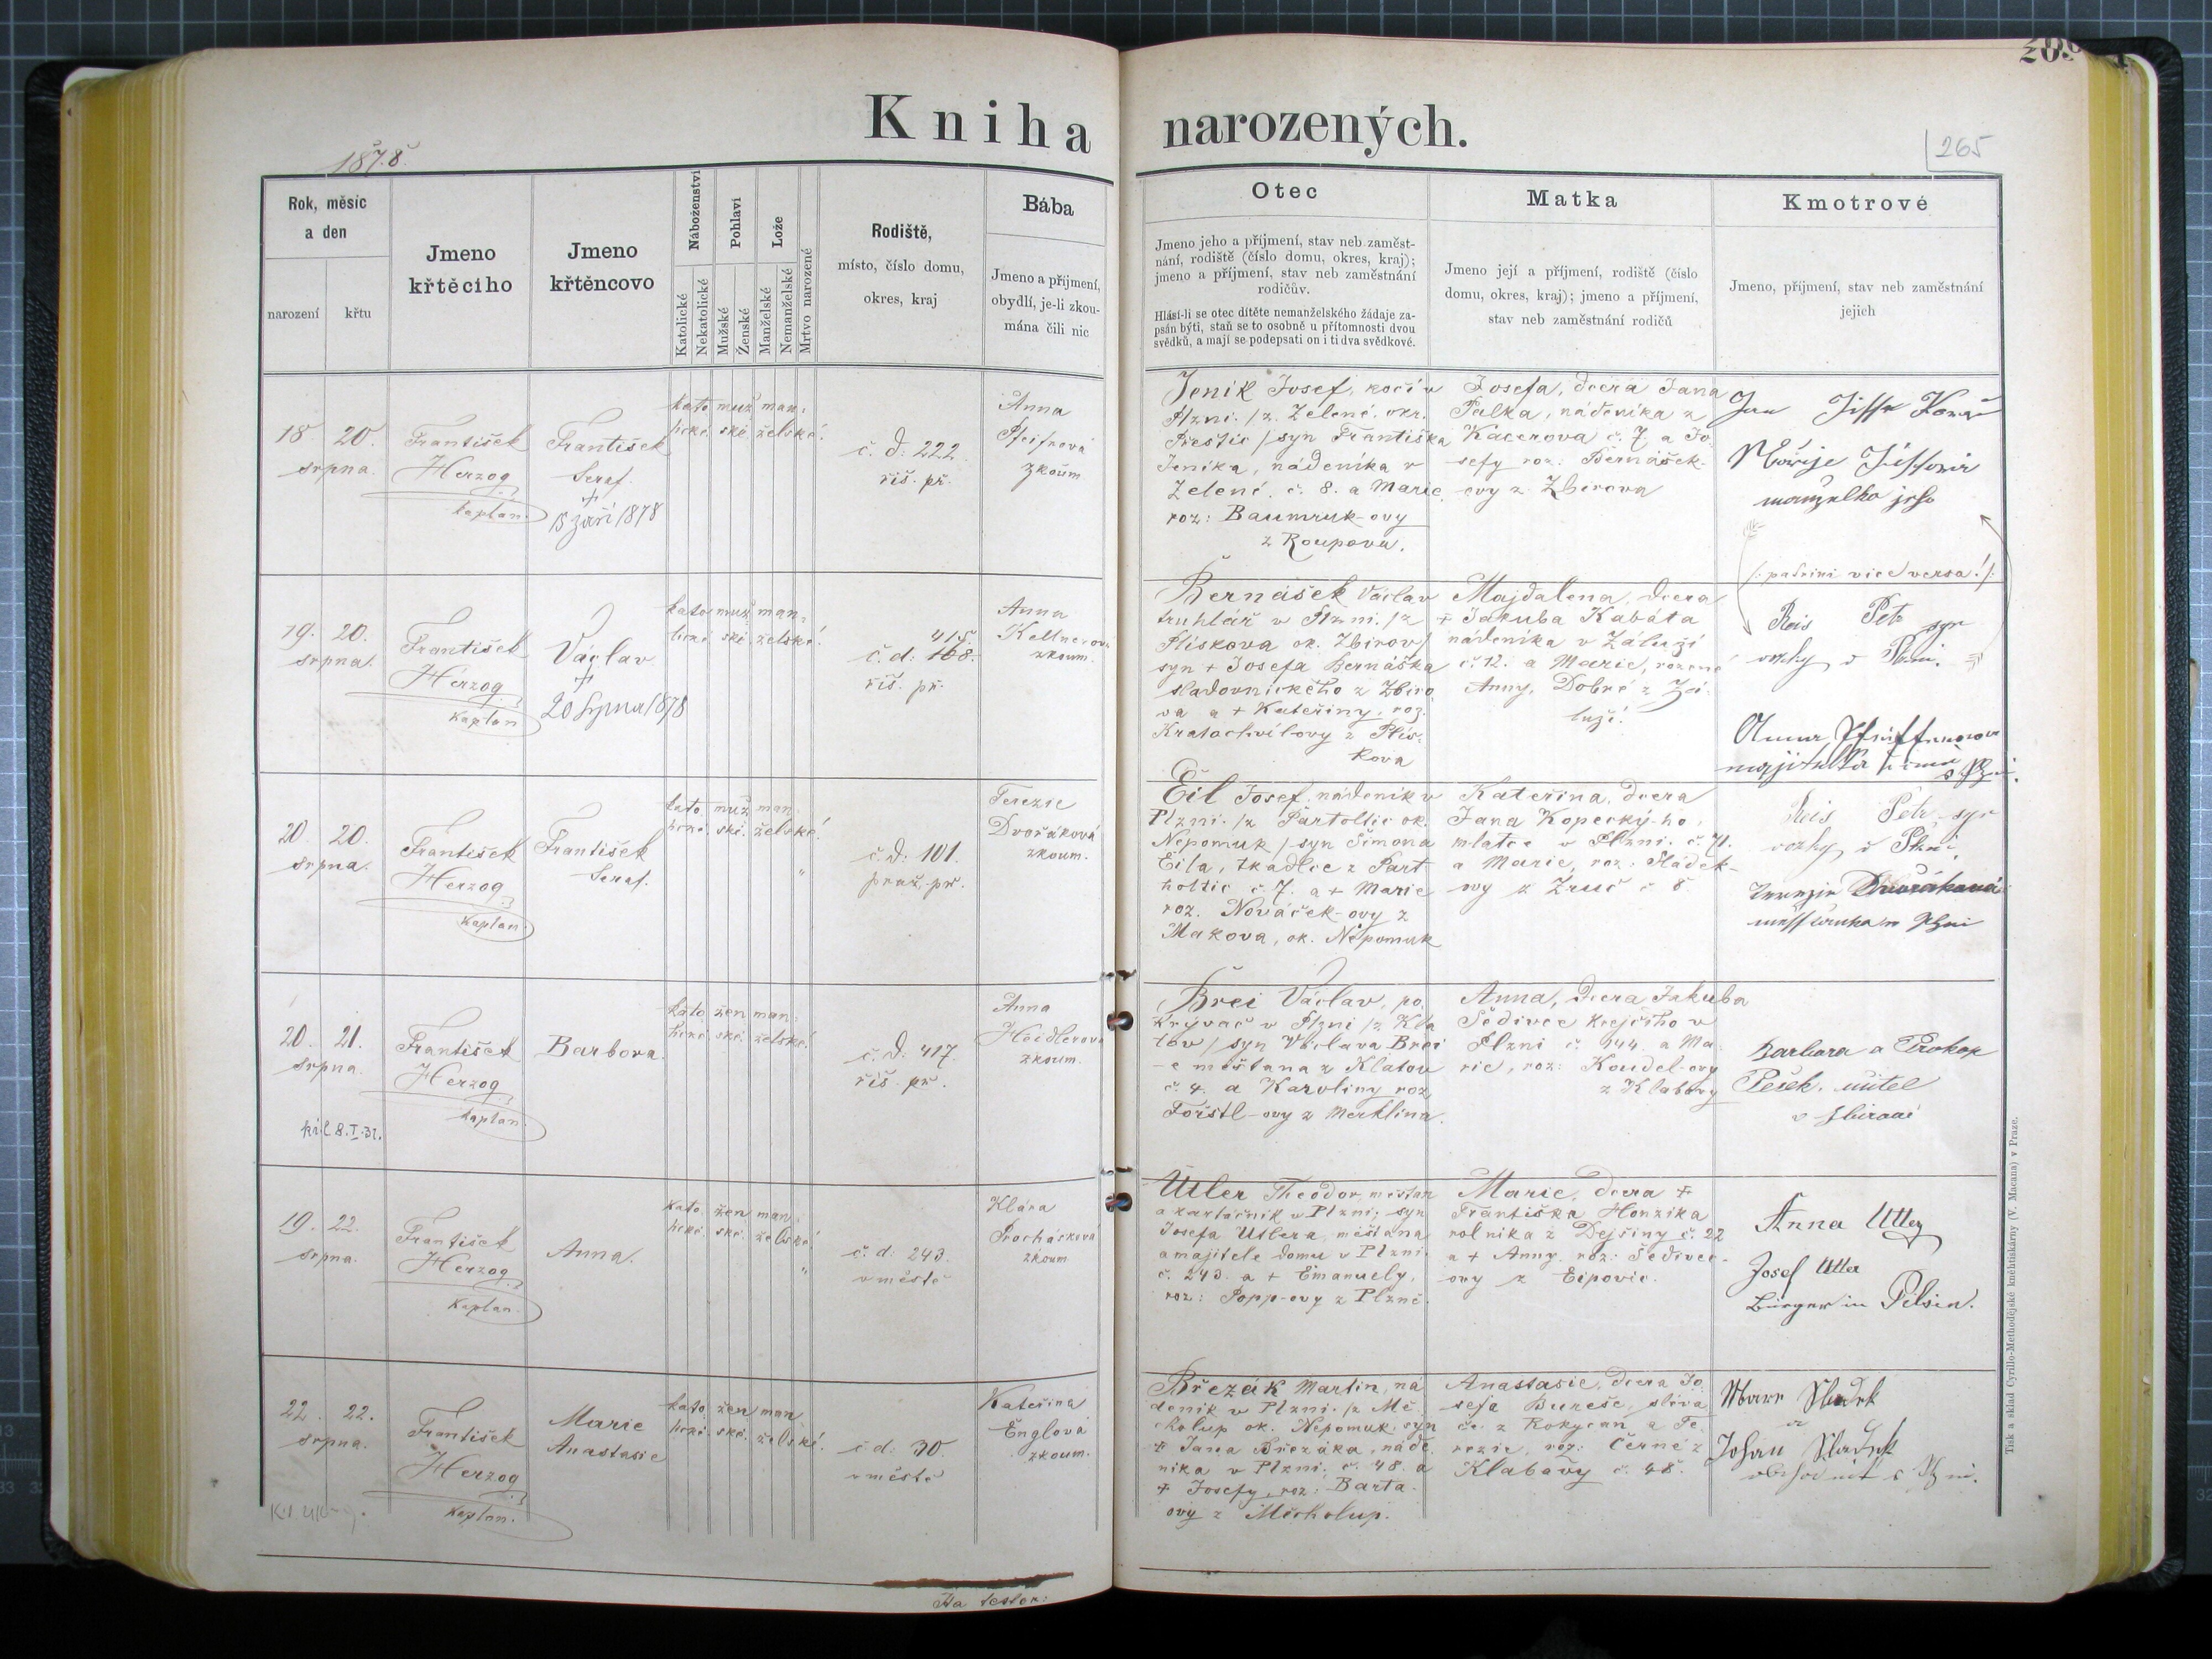 Kniha narozených.
1878
265
Rok, měsíc a den
narození
křtu
Jmeno křtěcího
Jmeno křtěncovo
Náboženství
Katolické
Nekatolické
Pohlaví
Mužské
Ženské
Lože
Manželské
Nemanželské
Mrtvo narozené
Rodiště,
místo, číslo domu,
okres, kraj
Bába
Jmeno a příjmení,
obydlí, je-li zkou-
mána čili nic
Otec
Jmeno jeho a příjmení, stav neb zaměst-
nání, rodiště (číslo domu, okres, kraj);
jmeno a příjmení, stav neb zaměstnání
rodičův.
Hlásí-li se otec dítěte nemanželského žádaje za-
psán býti, staň se to osobně u přítomnosti dvou
svědků, a mají se podepsati on i ti dva svědkové.
Matka
Jmeno její a příjmení, rodiště (číslo
domu, okres, kraj); jmeno a příjmení,
stav neb zaměstnání rodičů
Kmotrové
Jmeno, příjmení, stav neb zaměstnání
jejich
18. 20.
srpna.
František
Herzog
kaplan.
František
Seraf.
†
15 září 1878
kato muž man:
lické. ské želské.
č. d: 222.
říš. př.
Anna
Pfeifrová
zkoum
Jenik Josef, kočí v
Plzni. /z Zelené, okr.
Přestic / syn Františka
Jenika, nádeníka v
Zelené. č. 8. a Marie
roz: Baumruk-ovy
z Roupova.
Josefa, dcera Jana
Palka, nádeníka z
Kacerova č. 7. a Jo-
sefy roz: Bernášek-
ovy z Zberova
Jan
manželka jeho
/: patrini vice versa! /:
19. 20.
srpna.
František
Herzog
kaplan
Václav
†
20 srpna 1878
kato muž man:
lické. ské želské.
415.
č. d: 168.
říš. př.
Anna
Kellnerová
zkoum.
Bernášek Václav
truhlář v Plzni. /z
Plískova ok. Zbirov/
syn † Josefa Bernáška
sladovnického z Zbiro
va a † Kateřiny, roz.
Kratochvílovy z Plís-
kova
Majdalena, dcera
† Jakuba Kabáta
nádeníka v Záluží
č 12. a Marie, rozené
Anny, Dobré z Zá-
luží.
Reis Petr syn
v Plzni.
Anna
majitelka
20. 20.
srpna.
František
Herzog
kaplan.
František
Seraf.
kato muž man
lické. ské. želské.
č. d: 101.
praž. př.
Terezie
Dvořáková
zkoum.
Čil Josef, nádeník v
Plzni. /z Partoltic ok.
Nepomuk / syn Šimona
Čila, tkadlce z Part
holtic č. 7. a † Marie
roz. Nováček-ovy z
Makova, ok. Nepomuk
Kateřina, dcera
Jana Kopecký-ho,
mlatce v Plzni. č. 71.
a Marie, roz: Sládek-
ovy z Zruč č 8.
Reis Petr, syn
v Plzni.
Dvořáková
20. 21.
srpna.
František
Herzog
kaplan.
Barbora.
kato žen man:
lické. ské. želské.
č. d: 417.
říš. př.
Anna
Heidlerová
zkoum.
Brei Václav, po
krývač v Plzni /z Kla
tov / syn Václava Brei
-e měštana z Klatov
č. 4. a Karoliny roz
Förstl-ovy z Merklína.
Anna, dcera Jakuba
Šedivce krejčího v
Plzni č. 144. a Ma-
rie, roz: Koudel-ovy
z Klabavy
Barbora a Prokop
Pešek, učitel
8.I.31.
19. 22.
srpna.
František
Herzog
kaplan.
Anna.
kato žen man:
lické. ské. želské.
č. d: 243.
v městě
Klára
Procházková
zkoum
Utler Theodor, městan
a kartáčník v Plzni; syn
Josefa Utlera, měštana
a majitele domu v Plzni.
č. 243. a † Emanuely,
roz: Popp-ovy z Plzně.
Marie, dcera †
Františka Honzika
rolníka z Dejšiny č. 22
a † Anny, roz: Šedivec-
ovy z Ejpovic.
Anna Utler
Josef Utler
Bürger in Pilsen.
22. 22.
srpna.
František
Herzog
kaplan.
Marie
Anastasie
kato žen man
lické. ské. želské.
č d: 30
v městě
Kateřina
Englová
zkoum.
Březák Martin, ná
deník v Plzni. /z Mě-
cholup ok. Nepomuk, syn
† Jana Březáka, náde
níka v Plzni; č. 48. a
† Josefy, roz: Barta-
ovy z Měcholup.
Anastasie, dcera Jo-
sefa Bureše,
z Rokycan a Te-
rezie, roz: Černé z
Klabavy č. 48.
Marie Sladek
a
Johan Sladek
Tisk a sklad Cyrillo-Methodějské knihtiskárny (V. Macana) v Praze.